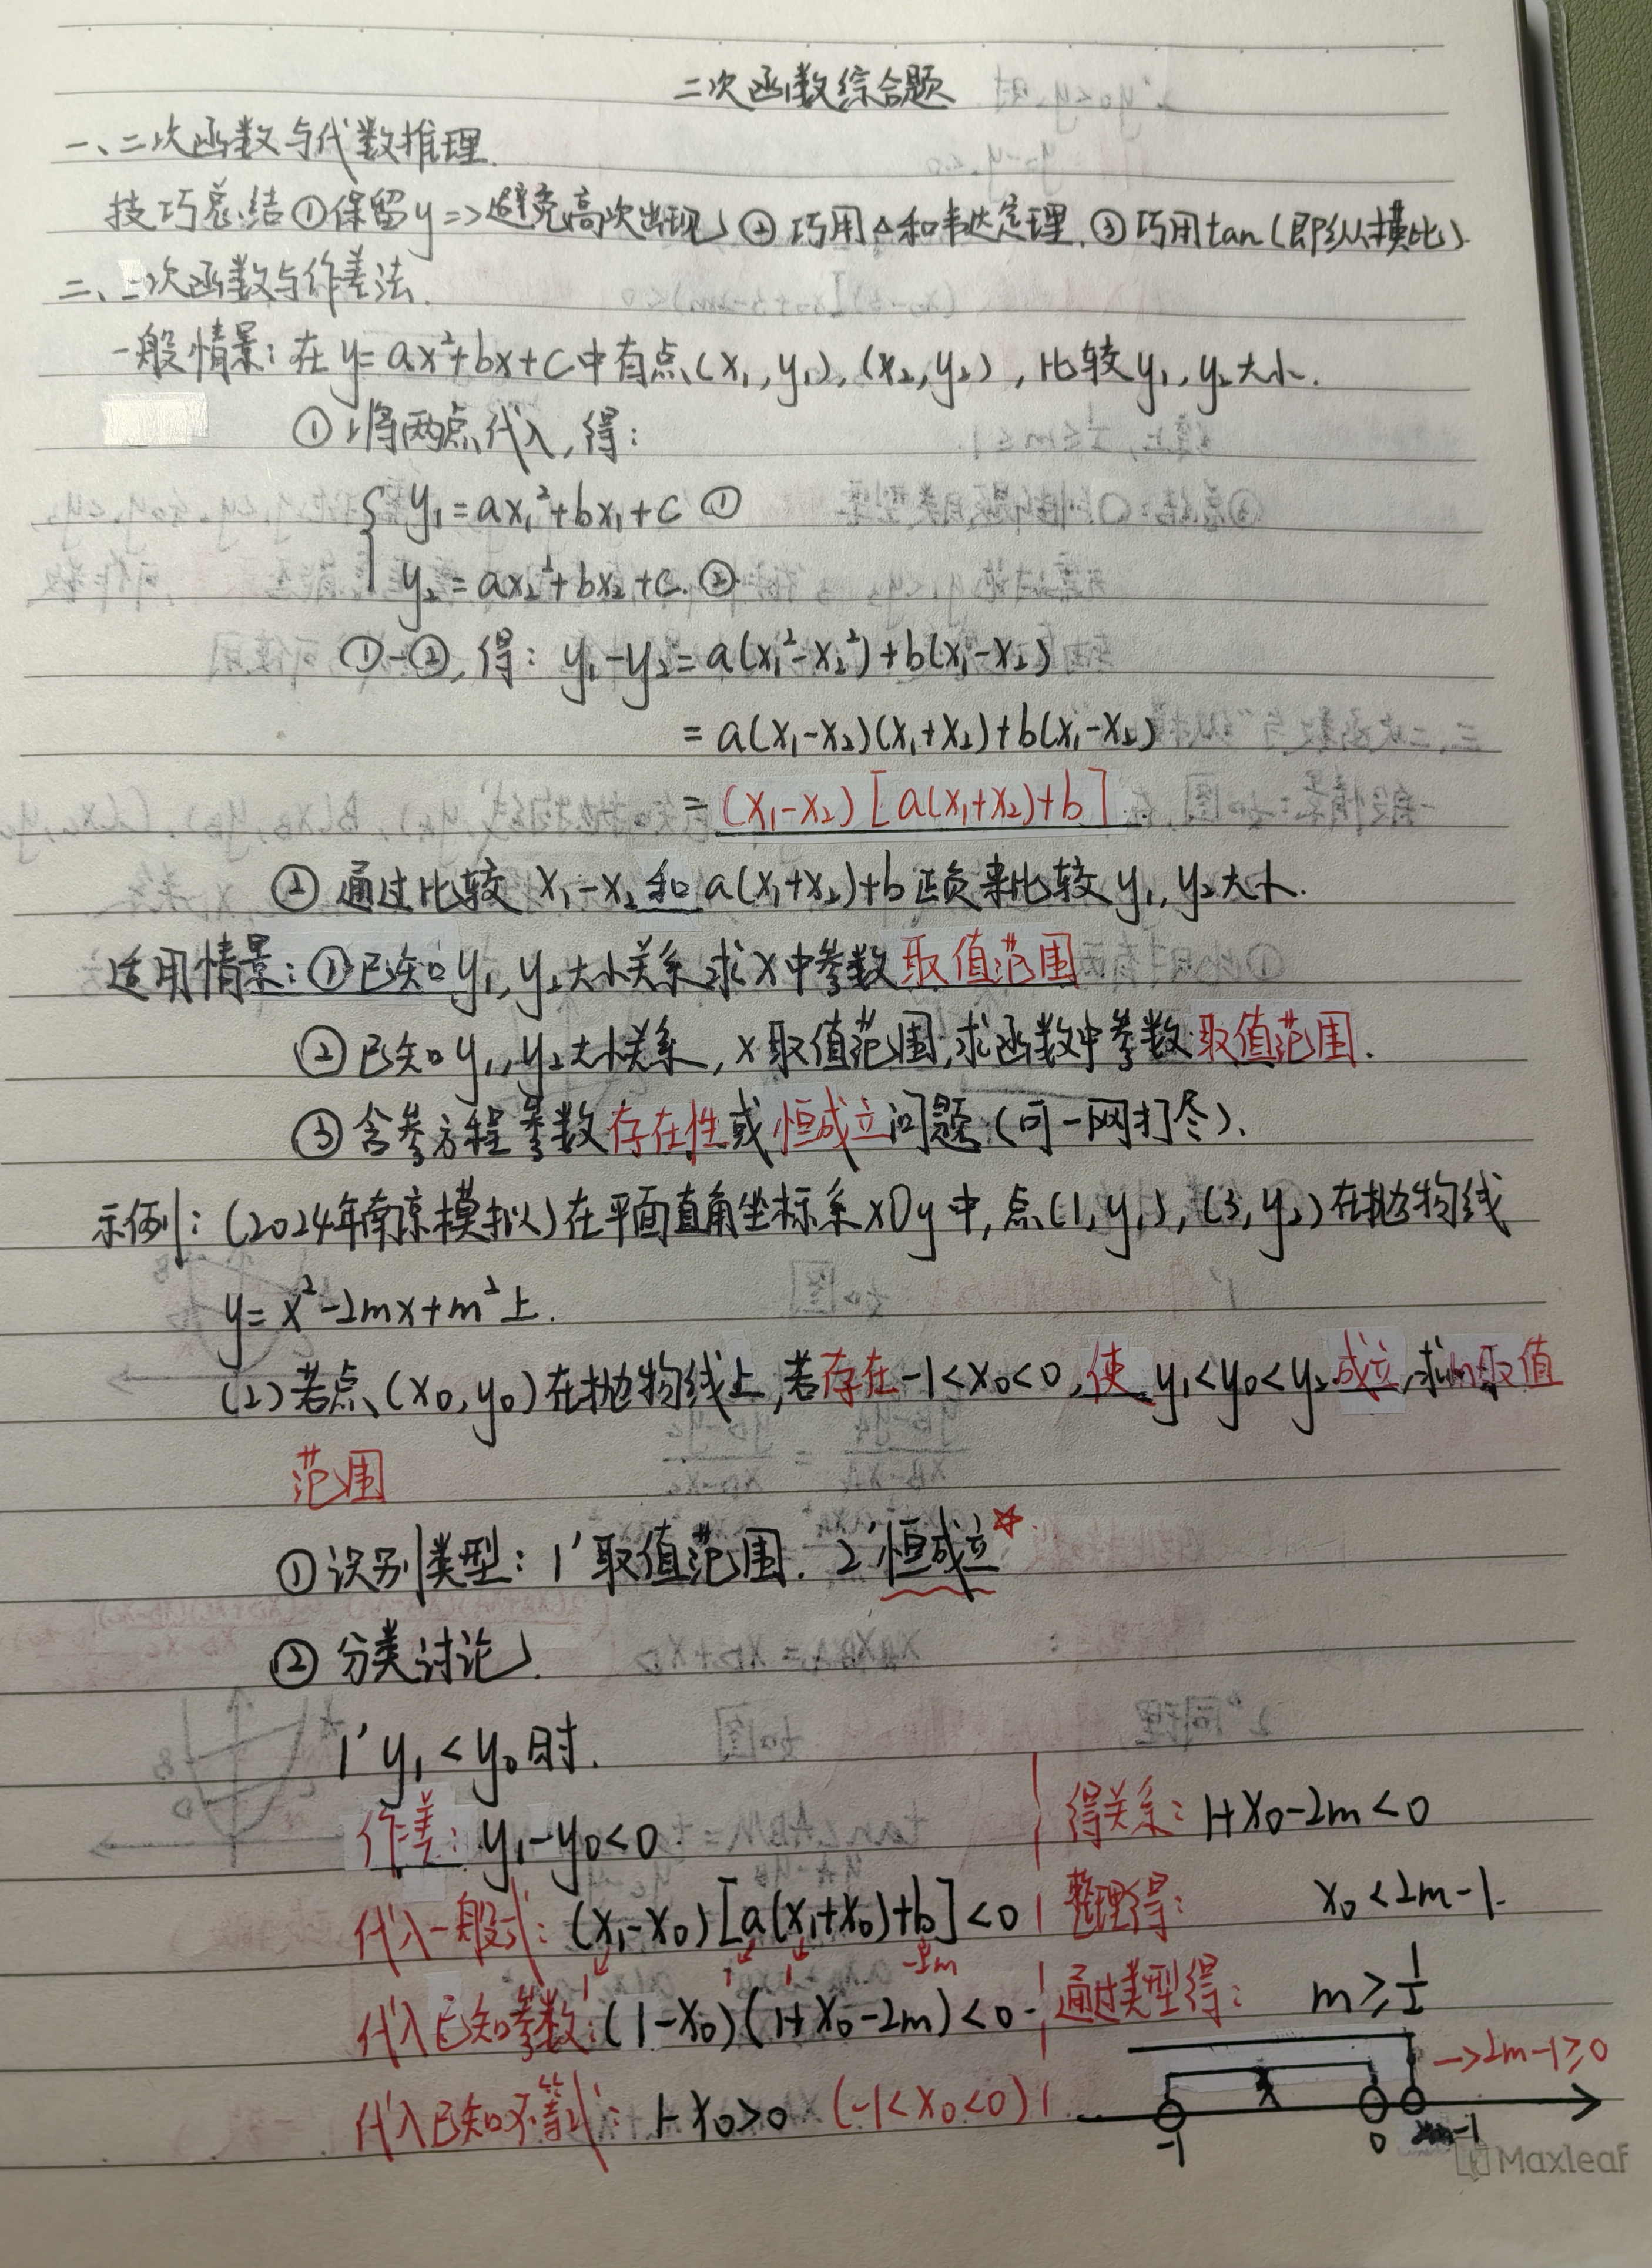 二次函数综合题
一、二次函数与代数推理.
技巧总结①保留y=>避免高次出现②巧用△和韦达定理.③巧用tan(即纵横比).
二、二次函数与作差法.
一般情景:在y=ax²+bx+c中有点(x₁,y₁),(x₂,y₂),比较y₁,y₂大小.
①将两点代入,得:
y₁=ax₁²+bx₁+c ①
y₂=ax₂²+bx₂+c.②
①-②,得:y₁-y₂=a(x₁²-x₂²)+b(x₁-x₂)
=a(x₁-x₂)(x₁+x₂)+b(x₁-x₂)
=(x₁-x₂)[a(x₁+x₂)+b]
②通过比较x₁-x₂和a(x₁+x₂)+b正负来比较y₁,y₂大小.
适用情景:①已知y₁,y₂大小关系求x中参数取值范围
②已知y₁,y₂大小关系,x取值范围,求函数中参数取值范围.
③含参方程参数存在性或恒成立问题(可一网打尽).
示例:(2024年南京模拟)在平面直角坐标系xOy中,点(1,y₁),(3,y₂)在抛物线
y=x²-2mx+m²上.
(2)若点(x₀,y₀)在抛物线上,若存在-1<x₀<0,使y₁<y₀<y₂成立,求m取值
范围
①识别类型:1'取值范围.2'恒成立☆
②分类讨论.
1' y₁<y₀时.
作差:y₁-y₀<0
代入一般式:(x₁-x₀)[a(x₁+x₀)+b]<0
1 1 1 -2m
代入已知参数:(1-x₀)(1+x₀-2m)<0
代入已知不等式:1-x₀>0 (-1<x₀<0)
得关系:1+x₀-2m<0
整理得: x₀<2m-1.
通过类型得: m≥1/2
->2m-1≥0
-1 0 2m-1
Maxleaf